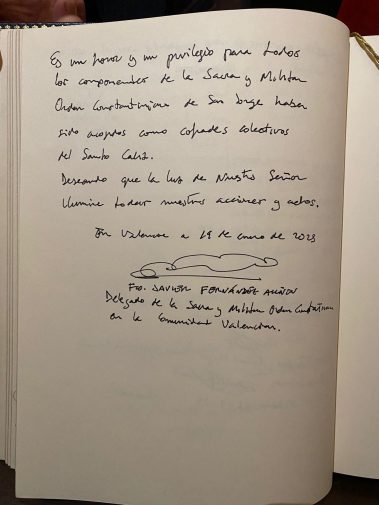 Es un honor y un privilegio para todos
los componentes de la Sacra y Militar
Orden Constantiniana de San Jorge haber
sido acogidos como cofrades colectivos
del Santo Cáliz.
Deseando que la luz de Nuestro Señor
ilumine todas nuestras acciones y actos.
En Valencia a de enero de 2023
Fdo. JAVIER FERNÁNDEZ
Delegado de la Sacra y Militar Orden Constantiniana
en la Comunidad Valenciana.